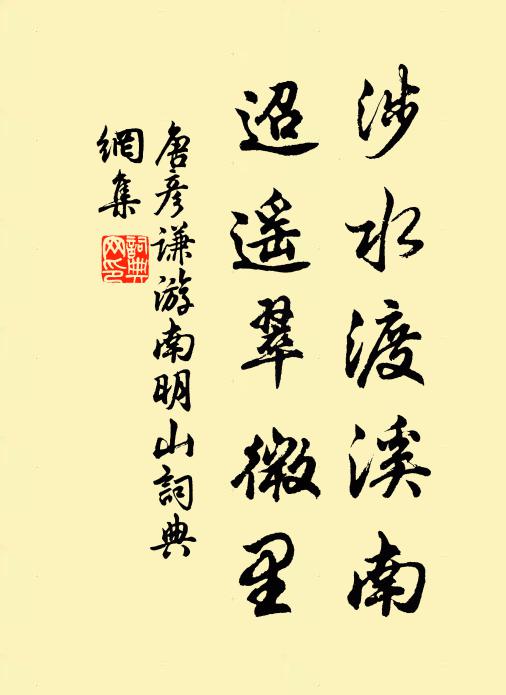 涉水渡溪南
迢遥翠微里
唐彦谦游南明山詞典
網集
詞典网印